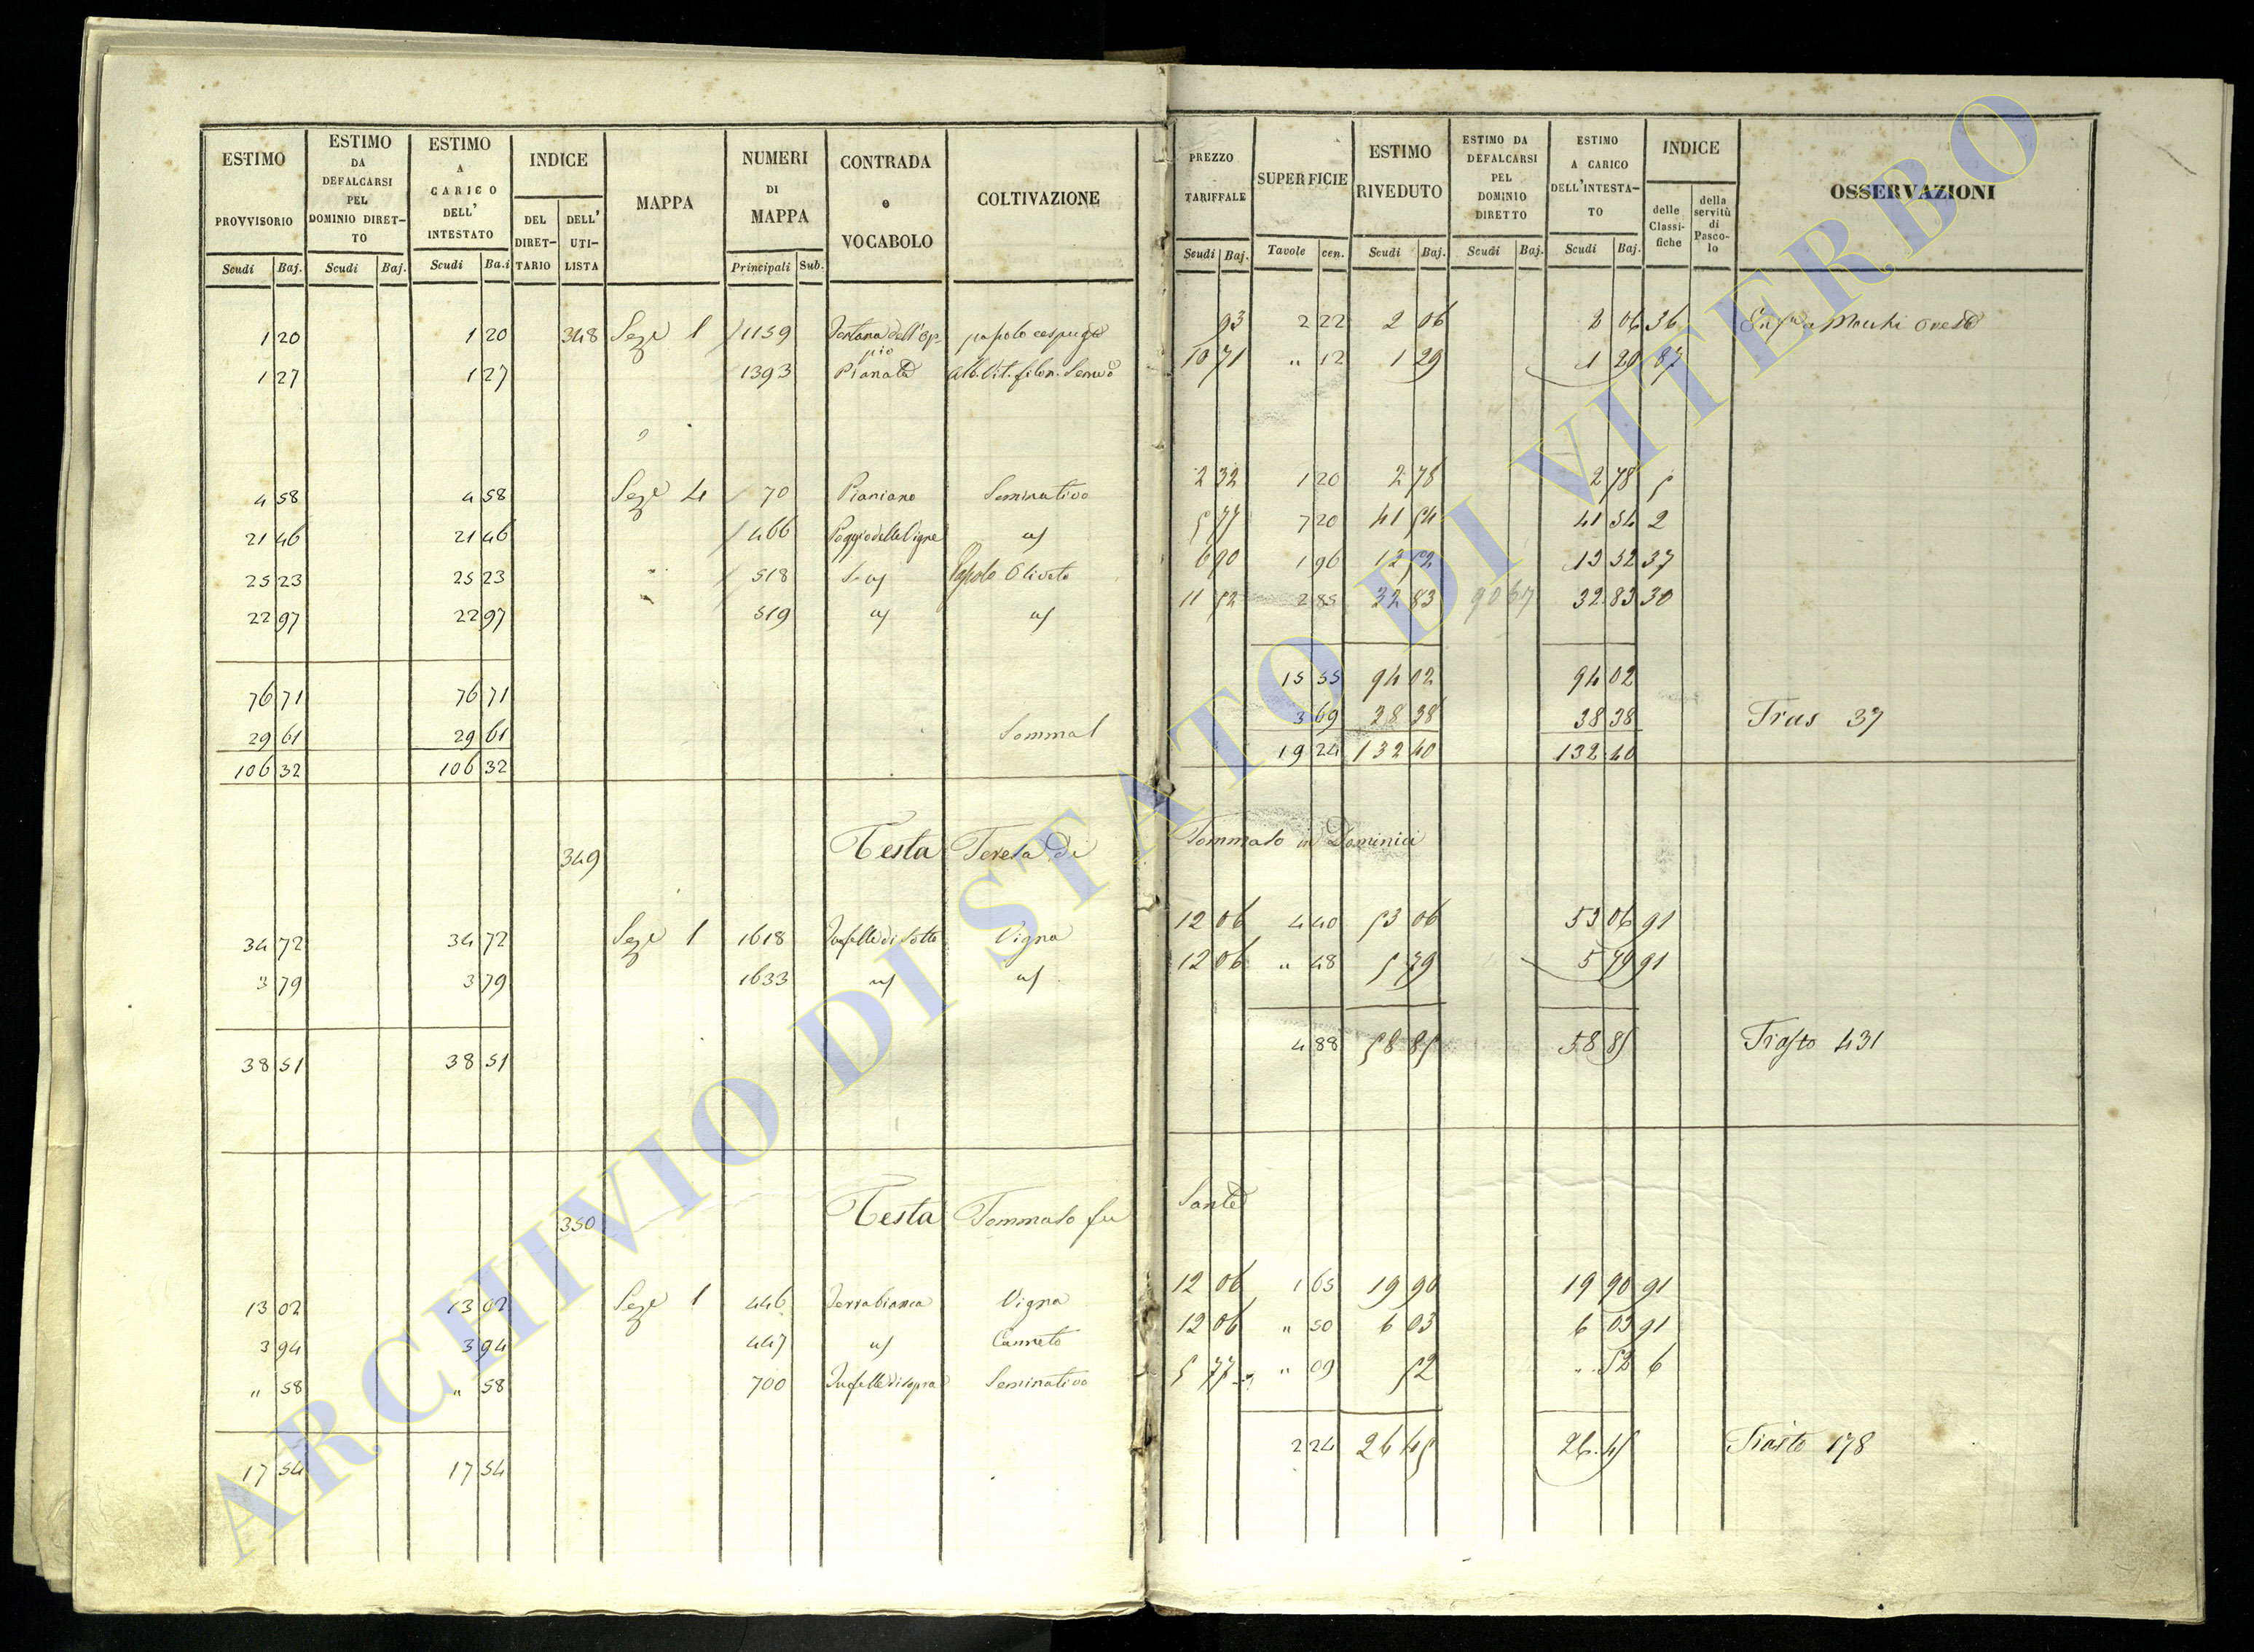 ESTIMO PROVVISORIO | ESTIMO DA DEFALCARSI PEL DOMINIO DIRETTO | ESTIMO A CARICO DELL' INTESTATO | INDICE | MAPPA | NUMERI DI MAPPA | CONTRADA e VOCABOLO | COLTIVAZIONE | PREZZO TARIFFALE | SUPERFICIE | ESTIMO RIVEDUTO | ESTIMO DA DEFALCARSI PEL DOMINIO DIRETTO | ESTIMO A CARICO DELL'INTESTATO | INDICE | OSSERVAZIONI
DEL DIRETTARIO | DELL' UTILISTA | delle Classifiche | della servitù di Pascolo
Scudi | Baj. | Scudi | Baj. | Scudi | Ba.i | Principali | Sub. | Scudi | Baj. | Tavole | cen. | Scudi | Baj. | Scudi | Baj. | Scudi | Baj.
1 20 | 1 20 | 348 | Seze 1 | 1159 | dell'Oppio | 93 | 2 22 | 2 06 | 2 06 | 36
1 27 | 1 27 | 1393 | Pianate | 10 71 | " 12 | 1 29 | 1 29 | 87
4 58 | 4 58 | Seze 4 | 70 | Pianiano | Seminativo | 2 32 | 1 20 | 2 78 | 2 78 | 5
21 46 | 21 46 | 466 | Poggio delle Vigne | 5 77 | 7 20 | 41 54 | 41 54 | 2
25 23 | 25 23 | 518 | Pascolo Olivato | 6 90 | 1 96 | 13 52 | 13 52 | 37
22 97 | 22 97 | 519 | 11 52 | 2 85 | 32 83 | 90 67 | 32 83 | 30
76 71 | 76 71 | 15 55 | 94 02 | 94 02
29 61 | 29 61 | Somma | 3 69 | 38 38 | 38 38 | 37
106 32 | 106 32 | 19 24 | 132 40 | 132 40
349 | Testa Teresa di Tommaso in Dominici
34 72 | 34 72 | Seze 1 | 1618 | di Sotto | Vigna | 12 06 | 4 40 | 53 06 | 53 06 | 91
3 79 | 3 79 | 1633 | 12 06 | " 48 | 5 79 | 5 79 | 91
38 51 | 38 51 | 4 88 | 58 85 | 58 85 | 431
350 | Testa Tommaso fu Sante
13 02 | 13 02 | Seze 1 | 446 | Terra bianca | Vigna | 12 06 | 1 65 | 19 90 | 19 90 | 91
3 94 | 3 94 | 447 | Canneto | 12 06 | " 50 | 6 03 | 6 03 | 91
" 58 | " 58 | 700 | di sopra | Seminativo | 5 77 | " 09 | 52 | " 52 | 6
17 54 | 17 54 | 2 24 | 26 45 | 26 45 | 178
ARCHIVIO DI STATO DI VITERBO